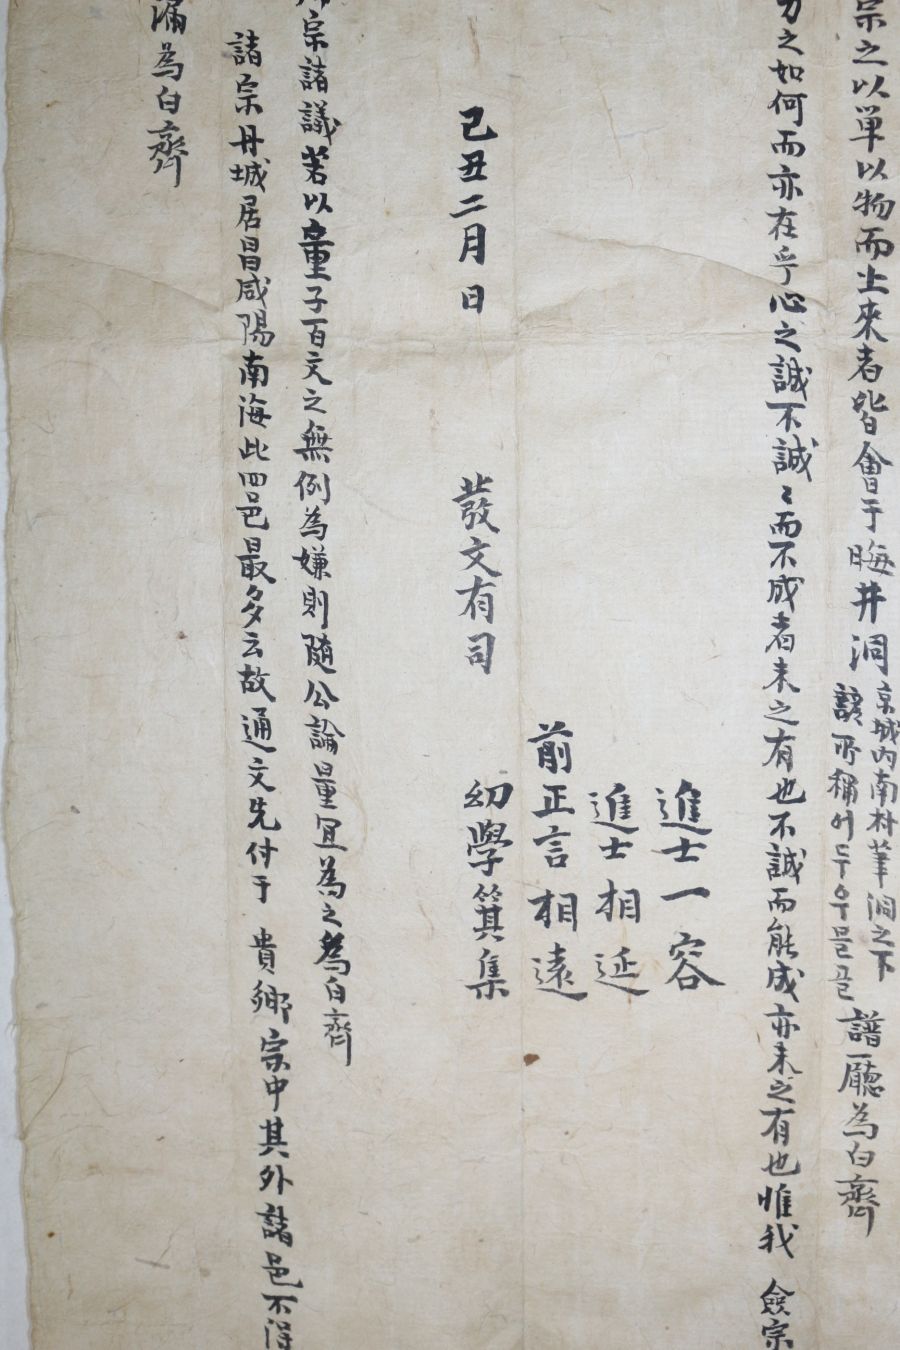 宗之以單以物而上來者皆會于晦井洞
京城內南村筆洞之下
諺所稱어두우물골
譜廳為白齊
力之如何而亦在乎心之誠不誠〻而不成者未之有也不誠而能成亦未之有也惟我 僉宗
進士一容
進士相延
前正言相遠
幼學箕集
發文有司
己丑二月 日
宗諸議若以童子百文之無例為嫌則隨公論量宜為之為白齊
諸宗丹城居昌咸陽南海此四邑最多云故通文先付于 貴鄉宗中其外諸邑不得
漏為白齊